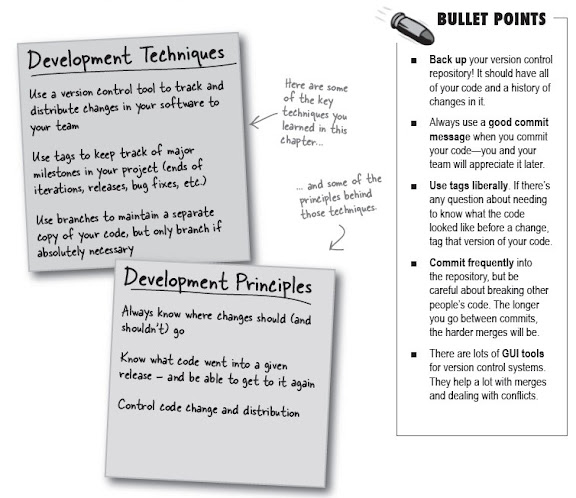 Development Techniques
Use a version control tool to track and
distribute changes in your software to
your team
Use tags to keep track of major
milestones in your project (ends of
iterations, releases, bug fixes, etc.)
Use branches to maintain a separate
copy of your code, but only branch if
absolutely necessary
Here are some
of the key
techniques you
learned in this
chapter...
... and some of the
principles behind
those techniques.
Development Principles
Always know where changes should (and
shouldn't) go
Know what code went into a given
release – and be able to get to it again
Control code change and distribution
BULLET POINTS
■ Back up your version control
repository! It should have all
of your code and a history of
changes in it.
■ Always use a good commit
message when you commit
your code—you and your
team will appreciate it later.
■ Use tags liberally. If there's
any question about needing
to know what the code
looked like before a change,
tag that version of your code.
■ Commit frequently into
the repository, but be
careful about breaking other
people's code. The longer
you go between commits,
the harder merges will be.
■ There are lots of GUI tools
for version control systems.
They help a lot with merges
and dealing with conflicts.